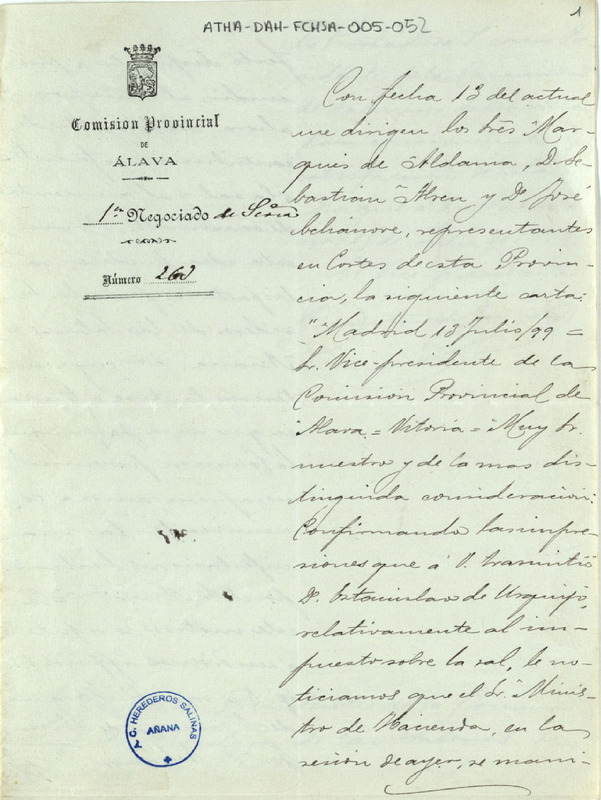 ATHA-DAH-FCHSA-005-052
1
Comision Provincial
DE
ÁLAVA
1er Negociado de Secría
Número 260
Con fecha 13 del actual
me dirigen los Sres Mar-
qués de Aldama, Dn Se-
bastian Abreu y Dn José
Echánove, representantes
en Cortes de esta Provin-
cia, la siguiente carta:
"Madrid 13 Julio/99 =
Sr. Vice-presidente de la
Comisión Provincial de
Alava. = Vitoria = Muy Sr.
nuestro y de la mas dis-
tinguida consideracion:
Confirmando las impre-
siones que á V. trasmitió
Dn. Estanislao de Urquijo,
relativamente al im-
puesto sobre la sal, le no-
ticiamos que el Sr. Minis-
tro de Hacienda, en la
sesión de ayer, se mani-
C. HEREDEROS SALINAS
AÑANA